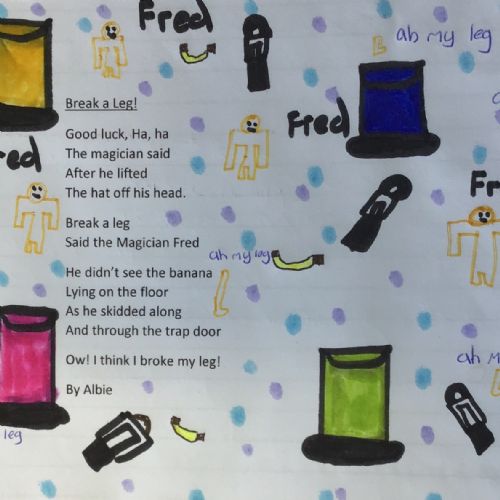 Fred
ah my leg
Break a Leg!
Good luck, Ha, ha
The magician said
After he lifted
The hat off his head.
Fred
Break a leg
Said the Magician Fred
ah my leg
He didn't see the banana
Lying on the floor
As he skidded along
And through the trap door
Ow! I think I broke my leg!
By Albie
leg